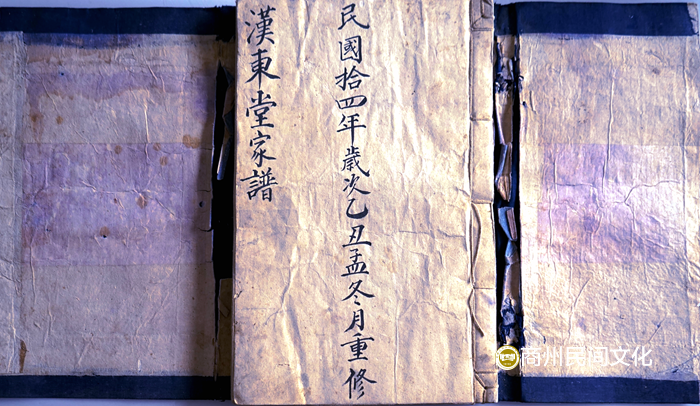 民國拾四年歲次乙丑孟冬月重修
漢東堂家譜
商州民间文化